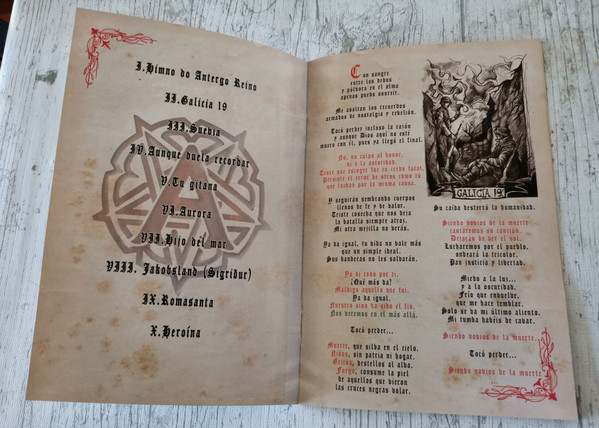 I.Himno do Antergo Reino
II.Galicia 19
III.Suevia
IV.Aunque duela recordar
V.Tu gitana
VI.Aurora
VII.Hijo del mar
VIII. Jakobsland (Sigriður)
IX.Romasanta
X.Heroína
Con sangre
entre los dedos
y pólvora en el alma
apenas puedo sonreír.
Me asaltan los recuerdos
armados de nostalgia y rebelión.
Tocó perder incluso la razón
y aunque Dios aquí no esté
muero con él, pues ya llegó el final.
No, no culpo al honor,
ni a la autoridad.
Triste que escoger fue tu credo fatal.
Durante el error de otros como tú
que luchan por la misma causa.
Y seguirán sembrando cuerpos
llenos de fe y de balor.
Triste cosecha que nos deja
la batalla siempre atroz.
Mi otra mejilla no verás.
Ya da igual, tu vida no vale más
que un simple ideal.
Sus banderas no les salvarán.
Ya di todo por ti.
¿Qué más da?
Maldigo aquello que fui.
Ya da igual.
Nuestro sino ha sido el fin.
Nos veremos en el más allá.
Tocó perder...
Muerte, que silba en el cielo.
Niños, sin patria ni hogar.
Gritos, destellos al alba.
Fuego, consume la piel
de aquellos que vieron
las cruces negras volar.
GALICIA 19
Su caída desterró la humanidad.
Siendo novios de la muerte
cantaremos un canción.
Dejarán de ver el sol.
Lucharemos por el pueblo,
ondeará la tricolor.
Pan justicia y libertad.
Miedo a la luz...
y a la oscuridad.
Frío que envuelve,
que me hace temblar.
Solo se va mi último aliento.
Mi tumba habéis de cavar.
Siendo novios de la muerte...
Tocó perder...
Siendo novios de la muerte